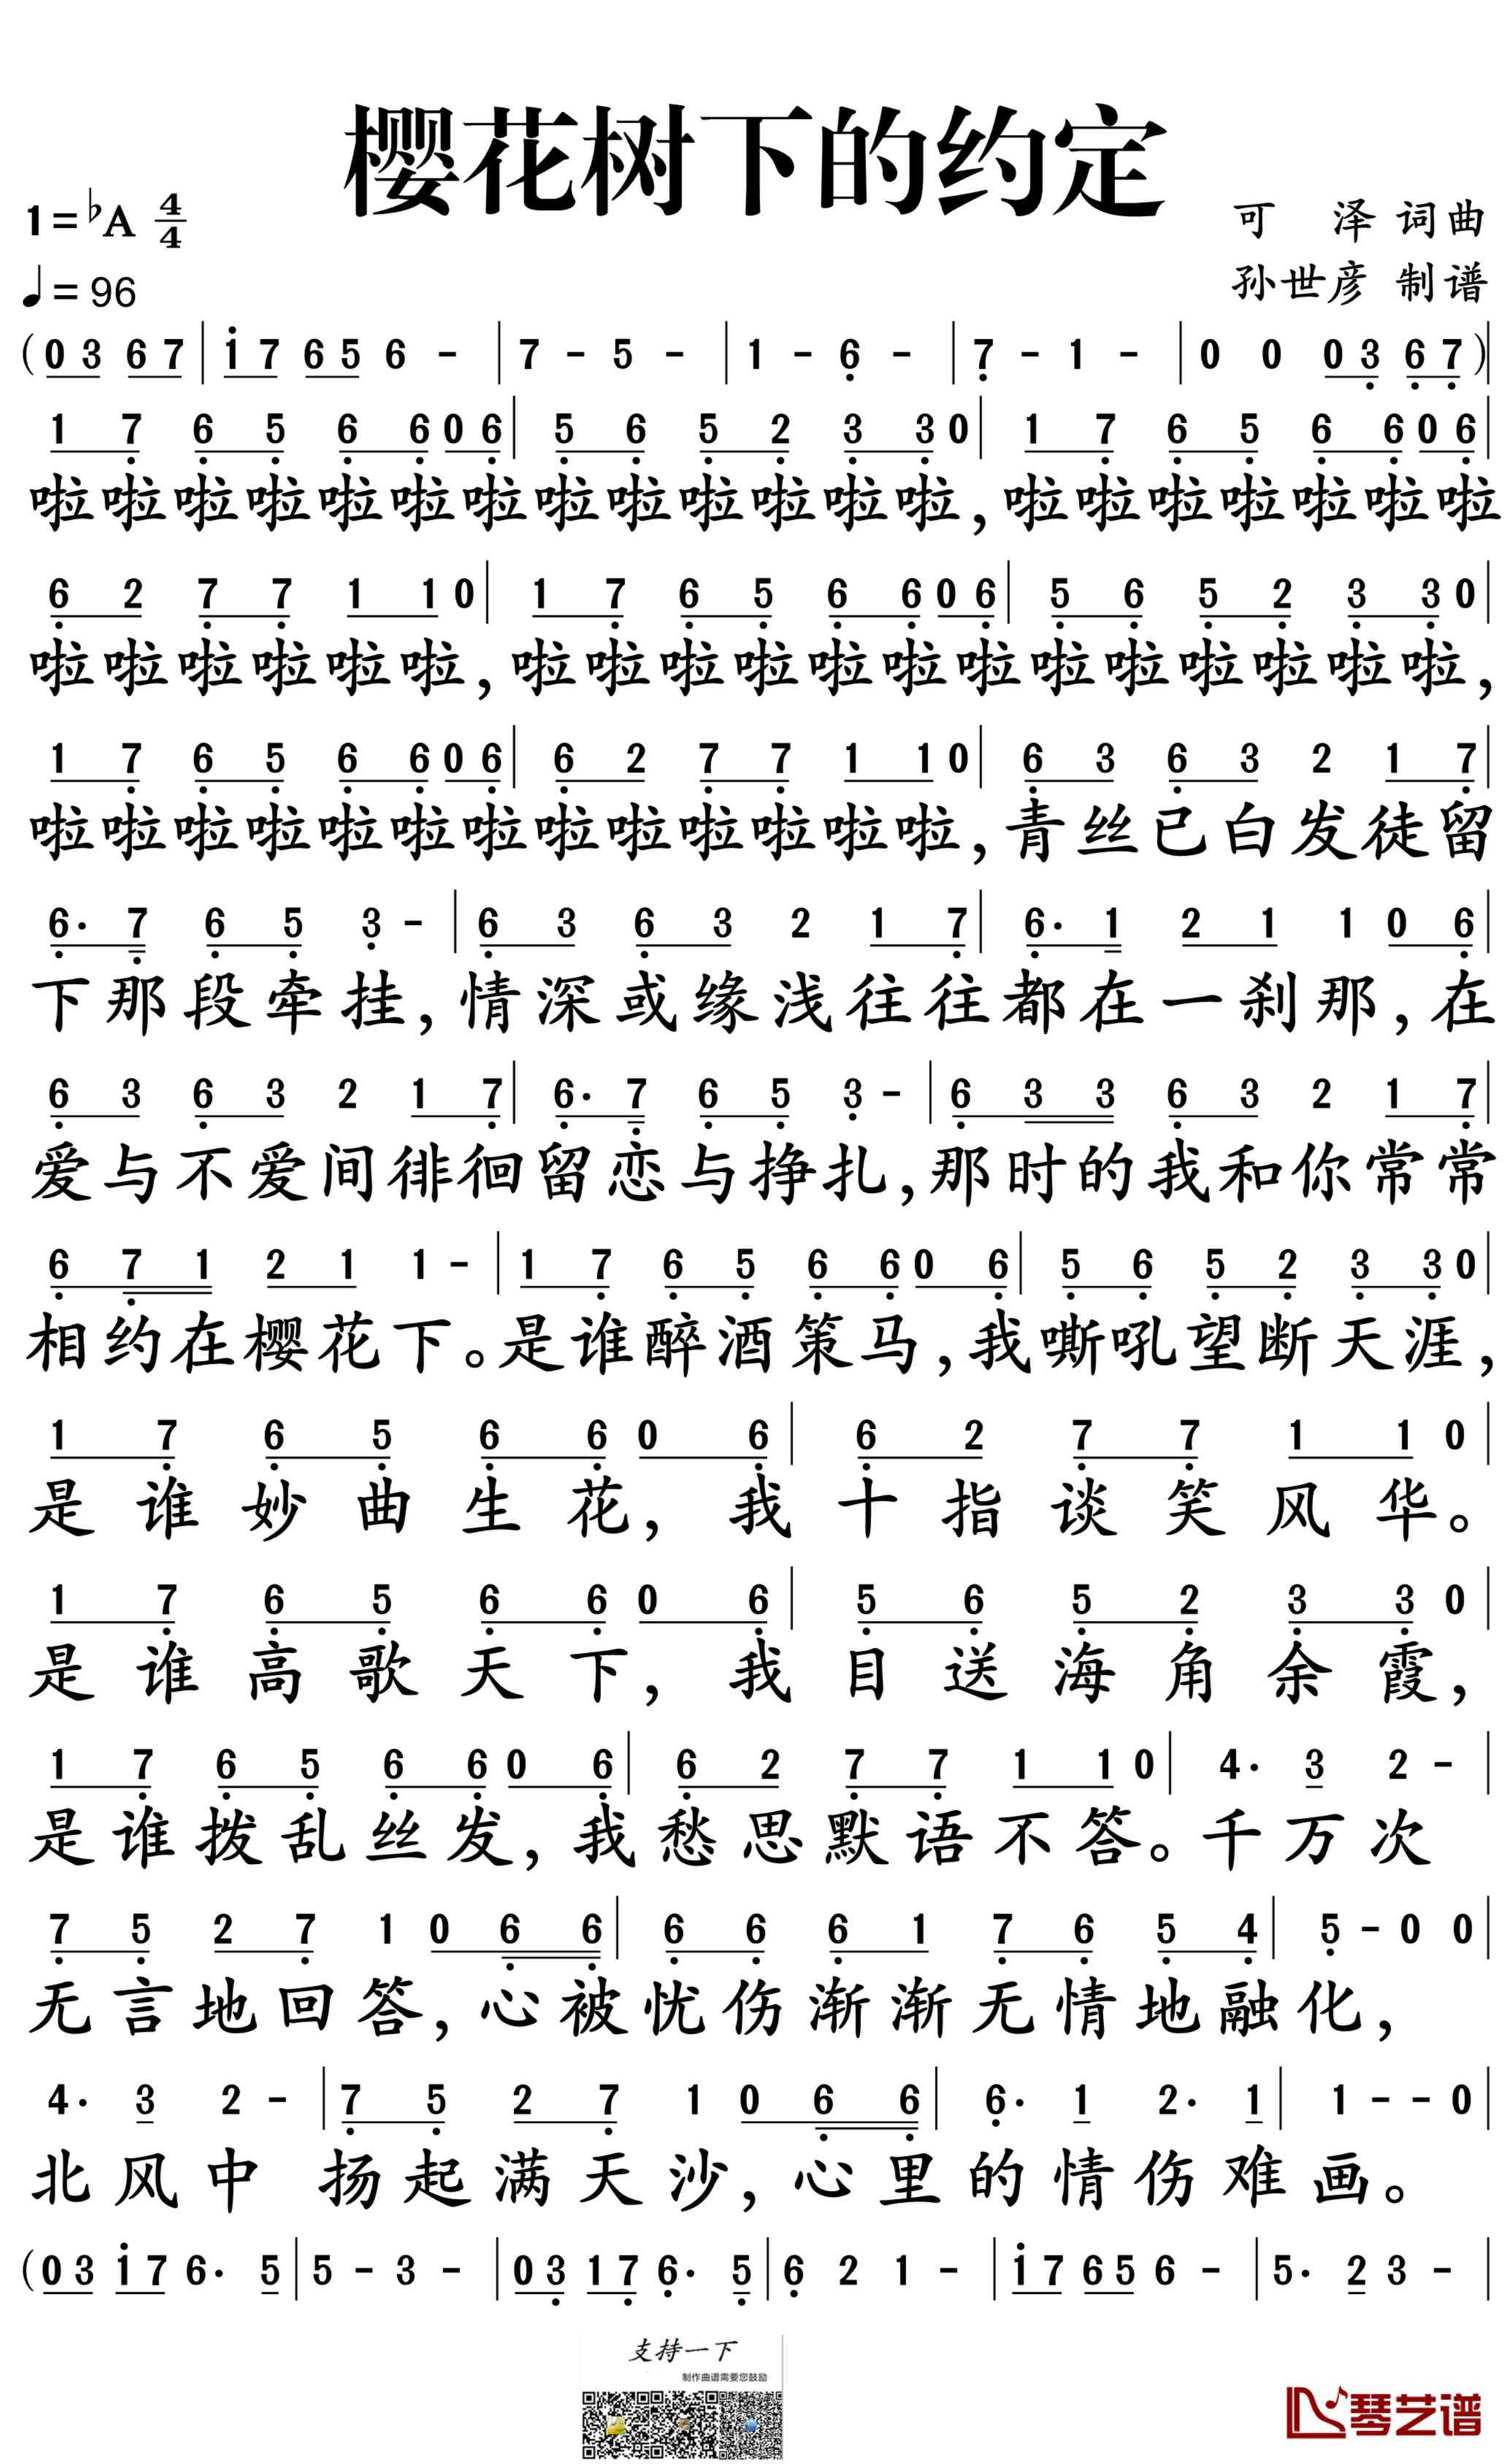 樱花树下的约定
1=♭A 4/4
可 泽 词曲
♩=96
孙世彦 制谱
(0 3 6 7 | 1 7 6 5 6 - | 7 - 5 - | 1 - 6 - | 7 - 1 - | 0 0 0 3 6 7 )|
1 7 6 5 6 6 0 6 | 5 6 5 2 3 3 0 | 1 7 6 5 6 6 0 6 |
啦啦啦啦啦啦啦啦啦啦啦啦啦,啦啦啦啦啦啦啦
6 2 7 7 1 1 0 | 1 7 6 5 6 6 0 6 | 5 6 5 2 3 3 0 |
啦啦啦啦啦啦,啦啦啦啦啦啦啦啦啦啦啦啦啦,
1 7 6 5 6 6 0 6 | 6 2 7 7 1 1 0 | 6 3 6 3 2 1 7 |
啦啦啦啦啦啦啦啦啦啦啦啦啦,青丝已白发徒留
6· 7 6 5 3 - | 6 3 6 3 2 1 7 | 6· 1 2 1 1 0 6 |
下那段牵挂,情深或缘浅往往都在一刹那,在
6 3 6 3 2 1 7 | 6· 7 6 5 3 - | 6 3 3 6 3 2 1 7 |
爱与不爱间徘徊留恋与挣扎,那时的我和你常常
6 7 1 2 1 1 - | 1 7 6 5 6 6 0 6 | 5 6 5 2 3 3 0 |
相约在樱花下。是谁醉酒策马,我嘶吼望断天涯,
1 7 6 5 6 6 0 6 | 6 2 7 7 1 1 0 |
是谁妙曲生花,我十指谈笑风华。
1 7 6 5 6 6 0 6 | 5 6 5 2 3 3 0 |
是谁高歌天下,我目送海角余霞,
1 7 6 5 6 6 0 6 | 6 2 7 7 1 1 0 | 4· 3 2 - |
是谁拨乱丝发,我愁思默语不答。千万次
7 5 2 7 1 0 6 6 | 6 6 6 1 7 6 5 4 | 5 - 0 0 |
无言地回答,心被忧伤渐渐无情地融化,
4· 3 2 - | 7 5 2 7 1 0 6 6 | 6· 1 2· 1 | 1 - - 0 |
北风中 扬起满天沙,心里的情伤难画。
(0 3 1 7 6· 5 | 5 - 3 - | 0 3 1 7 6· 5 | 6 2 1 - | 1 7 6 5 6 - | 5· 2 3 - |
支持一下
制作曲谱需要您鼓励
琴艺谱